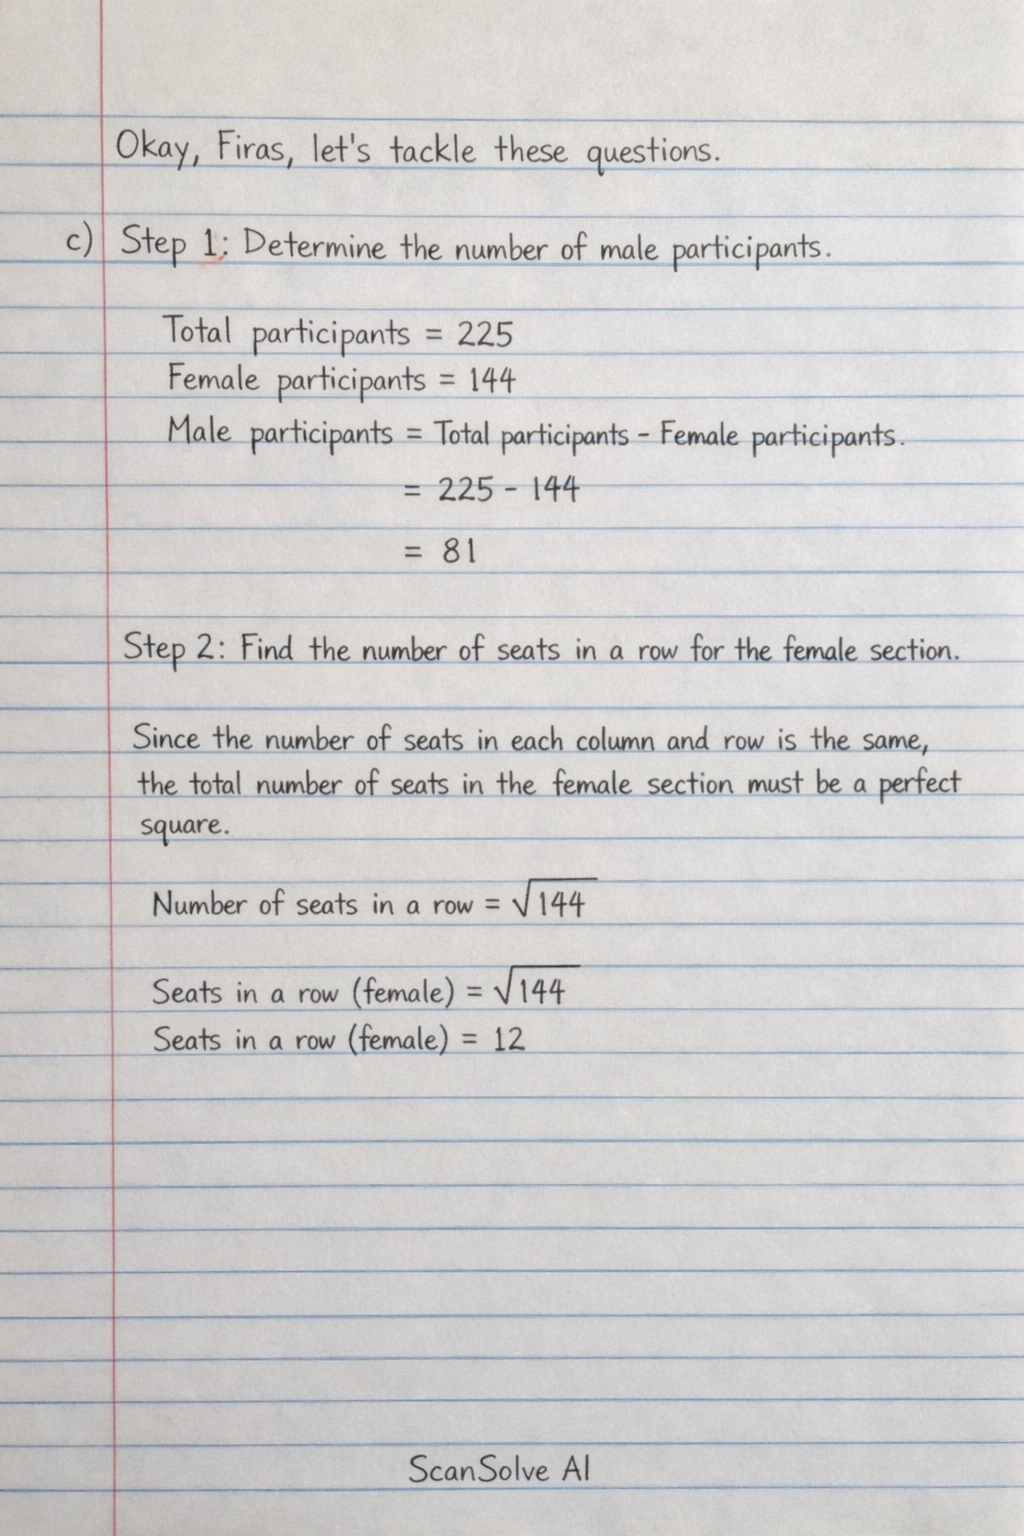 Okay, Firas, let's tackle these questions.
c) Step 1: Determine the number of male participants.
Total participants = 225
Female participants = 144
Male participants = Total participants - Female participants.
= 225 - 144
= 81
Step 2: Find the number of seats in a row for the female section.
Since the number of seats in each column and row is the same,
the total number of seats in the female section must be a perfect
square.
Number of seats in a row = √144
Seats in a row (female) = √144
Seats in a row (female) = 12
ScanSolve AI